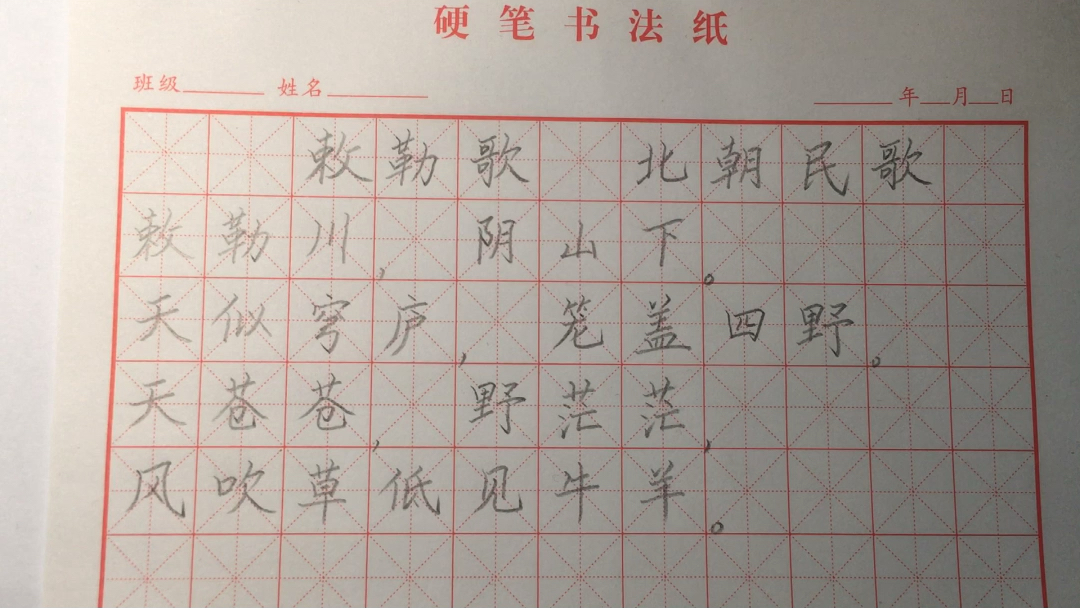 硬笔书法纸
班级 姓名 年 月 日
敕勒歌 北朝民歌
敕勒川，阴山下。
天似穹庐，笼盖四野。
天苍苍，野茫茫，
风吹草低见牛羊。